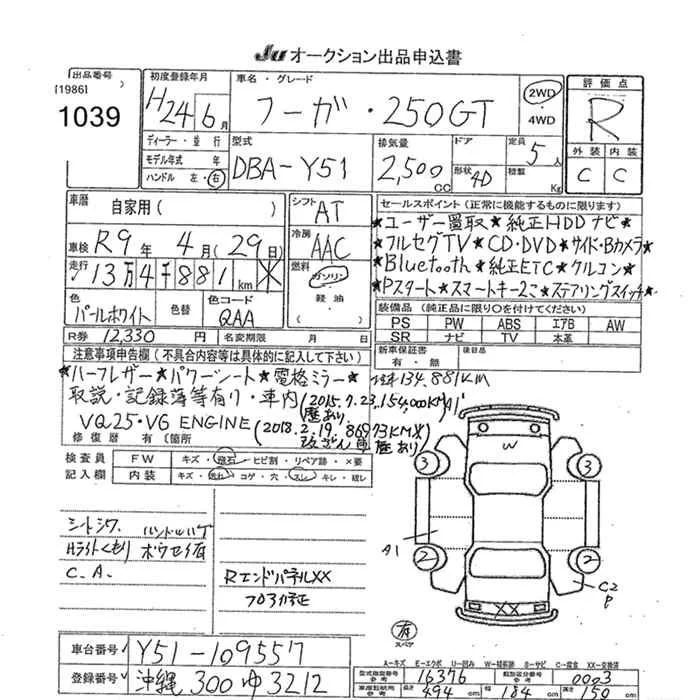 Ju オークション出品申込書
出品番号
[1986]
1039
初度登録年月
H24 6月
車名・グレード
フーガ・250GT
2WD
4WD
評価点
R
外装 内装
C C
ディーラー・並行
モデル年式 年
ハンドル 左・右
型式
DBA-Y51
排気量
2,500 CC
ドア
形状 4D
定員
5人
積載 Kg
車暦
自家用( )
車検 R9年 4月(29日)
走行 13万4千881km
色
パールホワイト
色替
色コード
QAA
シフト
AT
冷房
AAC
燃料
ガソリン
軽油
セールスポイント(正常に機能するものに限ります)
★ユーザー買取★純正HDDナビ★
★フルセグTV★CD・DVD★サイド・Bカメラ★
★Bluetooth★純正ETC★クルコン★
★Pスタート★スマートキー2こ★ステアリングスイッチ★
装備品(純正品に限り○を付けてください)
PS PW ABS エアB AW
SR ナビ TV 本革
R券 12,330円
名変期限 月 日
新車保証書
有・無
後日品
注意事項申告欄(不具合内容等は具体的に記入して下さい)
★ハーフレザー★パワーシート★電格ミラー★
134.881KM
取説・記録簿等有り・車内
(2015.7.23.154,000KM
歴あり)
VQ25・V6 ENGINE
(2018.2.19.86973KM
改ざん車
歴あり)
修復歴 有(箇所
検査員
記入欄
FW キズ・飛石・ヒビ割・リペア跡・X要
内装 キズ・汚れ・コゲ・穴・スレ・キレ・破レ
シートシワ ハンドルハゲ
Hライトくもり
C.A.
RエンドパネルXX
フロア修正
A1
W
3
3
A1
2
2
C2
P
XX
有
スペア
車台番号 Y51-109557
登録番号 沖縄 300 ゆ 3212
A=キズ E=エクボ U=凹み W=補修跡 S=サビ C=腐食 XX=交換済
型式指定番号
参考
16376
類別区分番号
参考
0003
長さ 494cm 幅 184cm 高さ 150